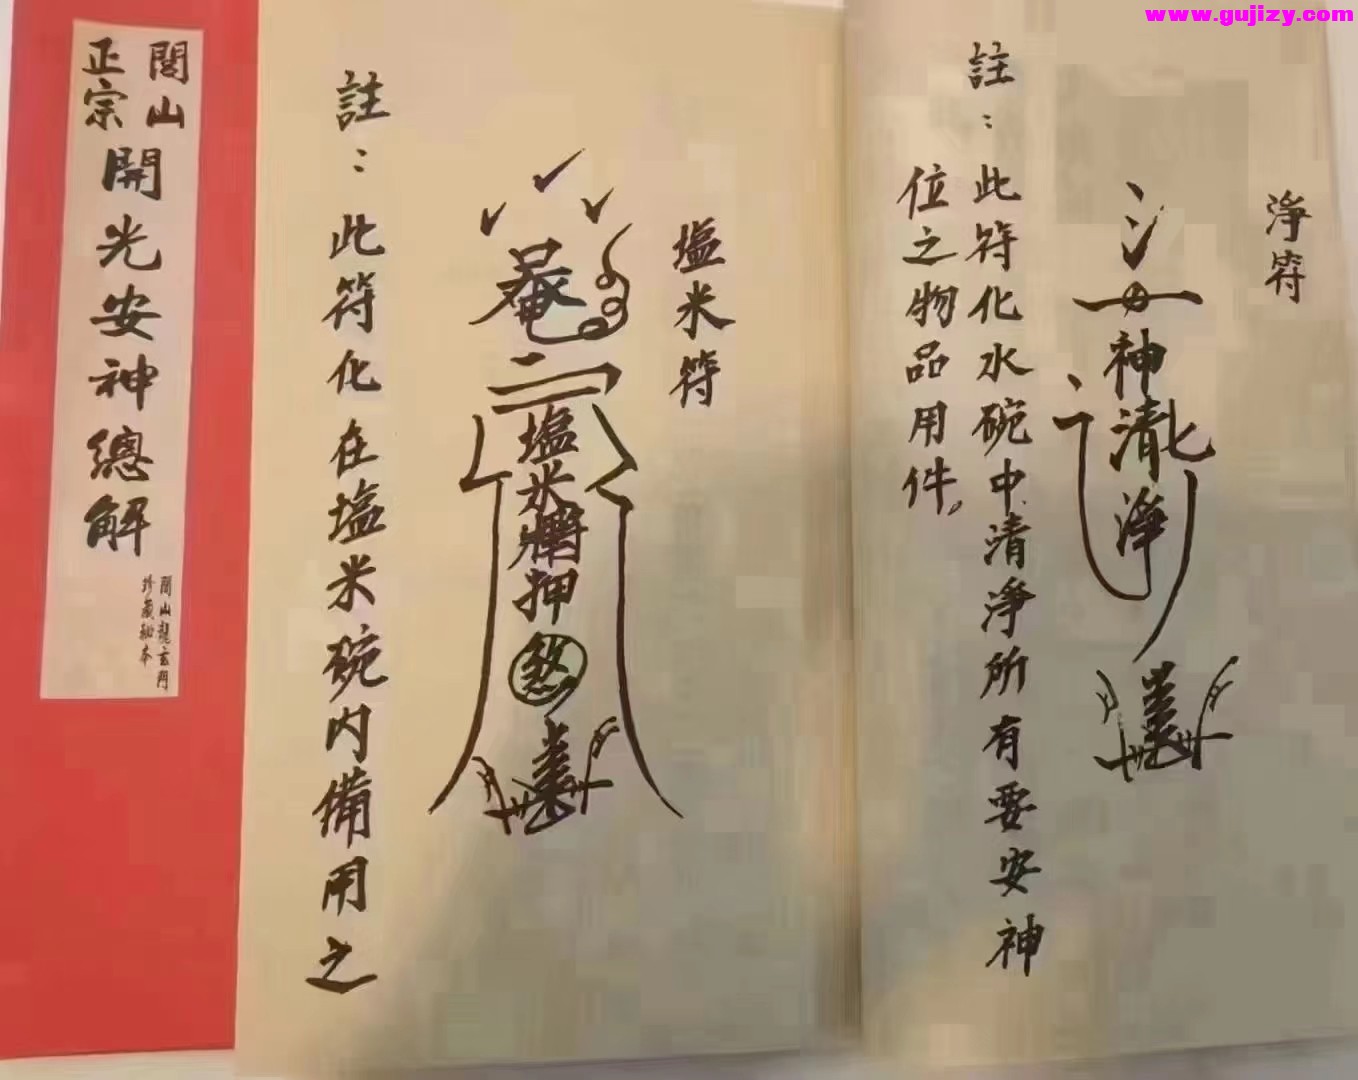 www.gujizy.com
閭山
正宗
開光安神總解
閭山龍玄門
珍藏秘本
淨符
神清淨
註：此符化水碗中清淨所有要安神
位之物品用件。
塩米符
塩米
押
煞
註：此符化在塩米碗內備用之